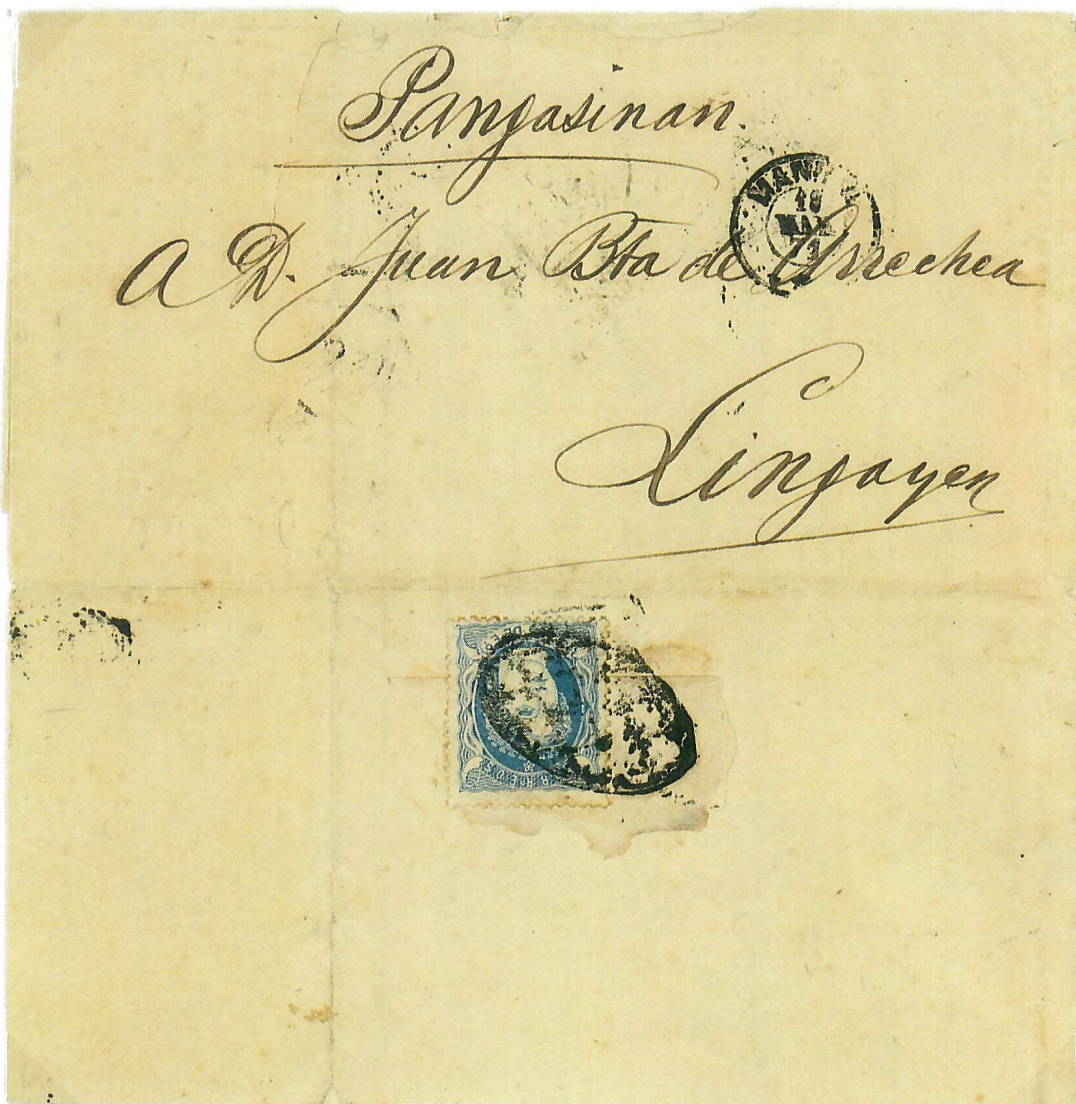 Pangasinan.
MANILA
A D. Juan Bta de Arrechea
Lingayen